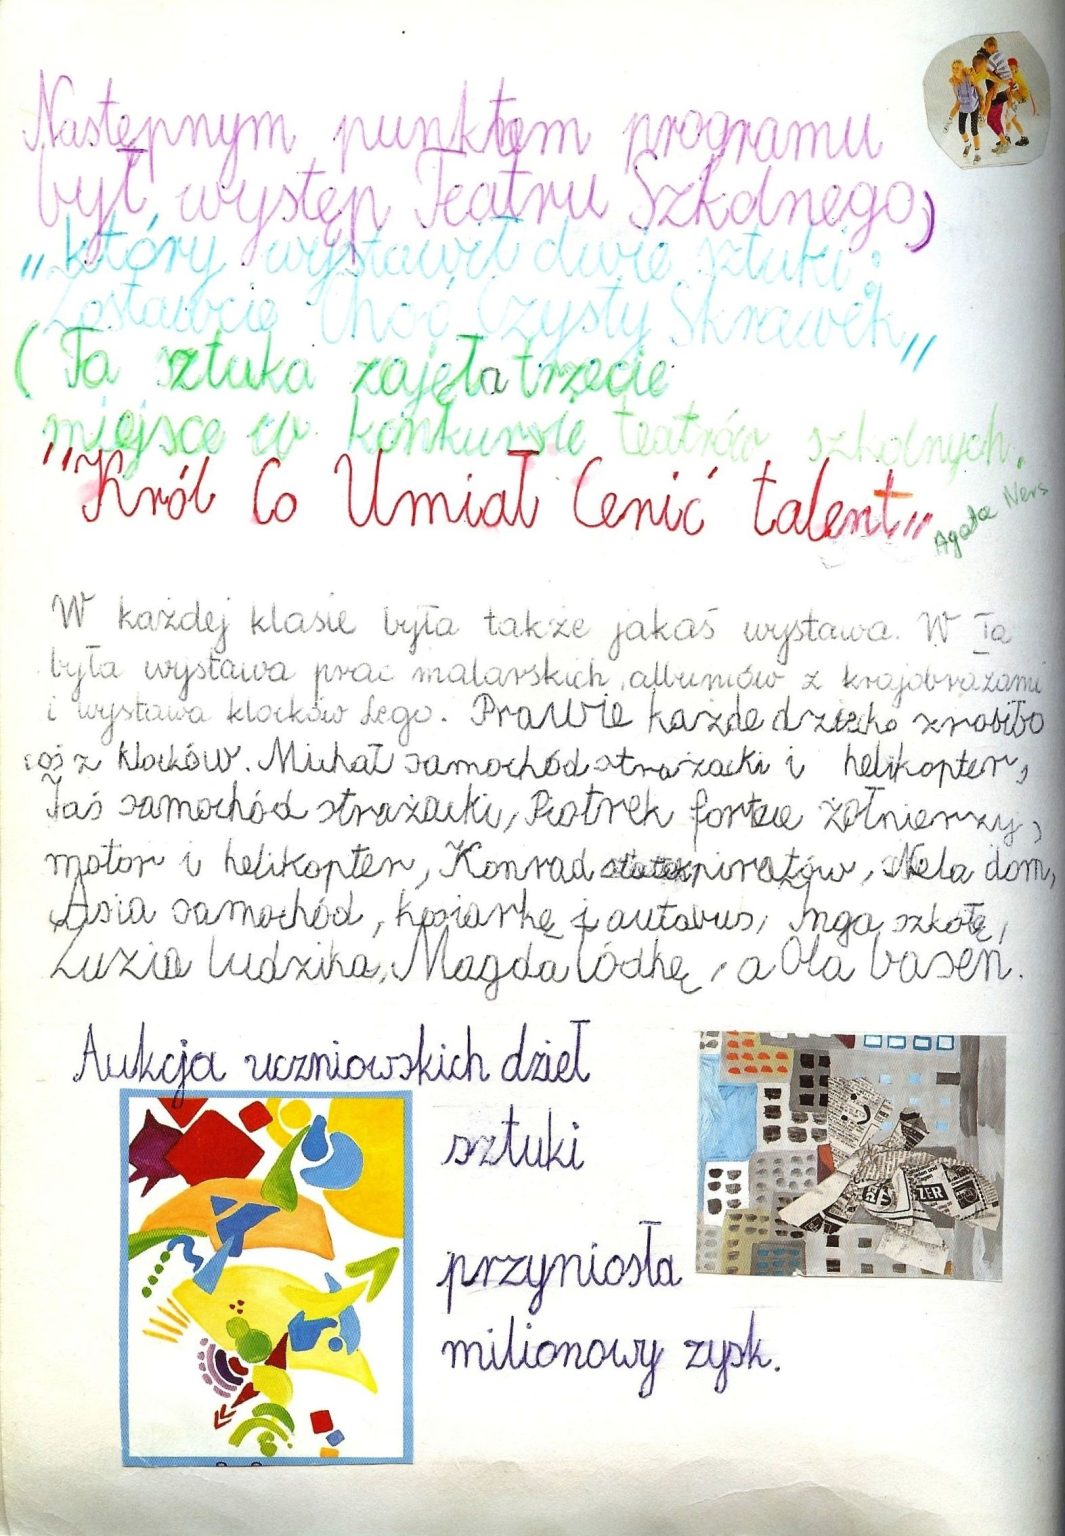 Następnym punktem programu
był występ Teatru Szkolnego,
który wystawił dwie sztuki:
„Zostawcie Choć Czysty Skrawek"
(Ta sztuka zajęła trzecie
miejsce w konkursie teatrów szkolnych.
"Król Co Umiał Cenić talent"
Agata Ners
W każdej klasie była także jakaś wystawa. W Ia
była wystawa prac malarskich, albumów z krajobrazami
i wystawa klocków Lego. Prawie każde dziecko zrobiło
coś z klocków. Michał samochód strażacki i helikopter,
Jaś samochód strażacki, Piotrek fortece żołnierzy,
motor i helikopter, Konrad statek piratów, Nela dom,
Asia samochód, kosiarkę i autobus, Inga szkołę,
Luzia ludzika, Magda łódkę, a Ola basen.
Aukcja uczniowskich dzieł
sztuki
przyniosła
milionowy zysk.